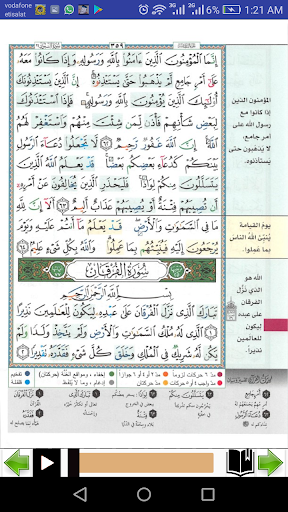 vodafone
etisalat
3G
4G
1:21 AM
٣٥٩
إِنَّمَا ٱلْمُؤْمِنُونَ ٱلَّذِينَ ءَامَنُوا۟ بِٱللَّهِ وَرَسُولِهِۦ وَإِذَا كَانُوا۟ مَعَهُۥ
عَلَىٰٓ أَمْرٍ جَامِعٍ لَّمْ يَذْهَبُوا۟ حَتَّىٰ يَسْتَـْٔذِنُوهُ إِنَّ ٱلَّذِينَ يَسْتَـْٔذِنُونَكَ
أُو۟لَـٰٓئِكَ ٱلَّذِينَ يُؤْمِنُونَ بِٱللَّهِ وَرَسُولِهِۦ فَإِذَا ٱسْتَـْٔذَنُوكَ
لِبَعْضِ شَأْنِهِمْ فَأْذَن لِّمَن شِئْتَ مِنْهُمْ وَٱسْتَغْفِرْ لَهُمُ
ٱللَّهَ إِنَّ ٱللَّهَ غَفُورٌ رَّحِيمٌ ٦٢ لَّا تَجْعَلُوا۟ دُعَآءَ ٱلرَّسُولِ
بَيْنَكُمْ كَدُعَآءِ بَعْضِكُم بَعْضًا قَدْ يَعْلَمُ ٱللَّهُ ٱلَّذِينَ
يَتَسَلَّلُونَ مِنكُمْ لِوَاذًا فَلْيَحْذَرِ ٱلَّذِينَ يُخَالِفُونَ عَنْ أَمْرِهِۦٓ
أَن تُصِيبَهُمْ فِتْنَةٌ أَوْ يُصِيبَهُمْ عَذَابٌ أَلِيمٌ ٦٣ أَلَآ إِنَّ لِلَّهِ
مَا فِى ٱلسَّمَـٰوَٰتِ وَٱلْأَرْضِ قَدْ يَعْلَمُ مَآ أَنتُمْ عَلَيْهِ وَيَوْمَ
يُرْجَعُونَ إِلَيْهِ فَيُنَبِّئُهُم بِمَا عَمِلُوا۟ وَٱللَّهُ بِكُلِّ شَىْءٍ عَلِيمٌ ٦٤
سُورَةُ الْفُرْقَانِ
بِسْمِ ٱللَّهِ ٱلرَّحْمَـٰنِ ٱلرَّحِيمِ
تَبَارَكَ ٱلَّذِى نَزَّلَ ٱلْفُرْقَانَ عَلَىٰ عَبْدِهِۦ لِيَكُونَ لِلْعَـٰلَمِينَ نَذِيرًا
١ ٱلَّذِى لَهُۥ مُلْكُ ٱلسَّمَـٰوَٰتِ وَٱلْأَرْضِ وَلَمْ يَتَّخِذْ وَلَدًا وَلَمْ
يَكُن لَّهُۥ شَرِيكٌ فِى ٱلْمُلْكِ وَخَلَقَ كُلَّ شَىْءٍ فَقَدَّرَهُۥ تَقْدِيرًا ٢
المؤمنون الذين
إذا كانوا مع
رسول الله على
أمر جامع
لا يذهبون حتى
يستأذنوه.
يوم القيامة
يُنَبِّئُ اللَّهُ الناس
بما عملوا.
الله هو
الذي نزّل
الفرقان
على عبده
ليكون
للعالمين
نذيرا.